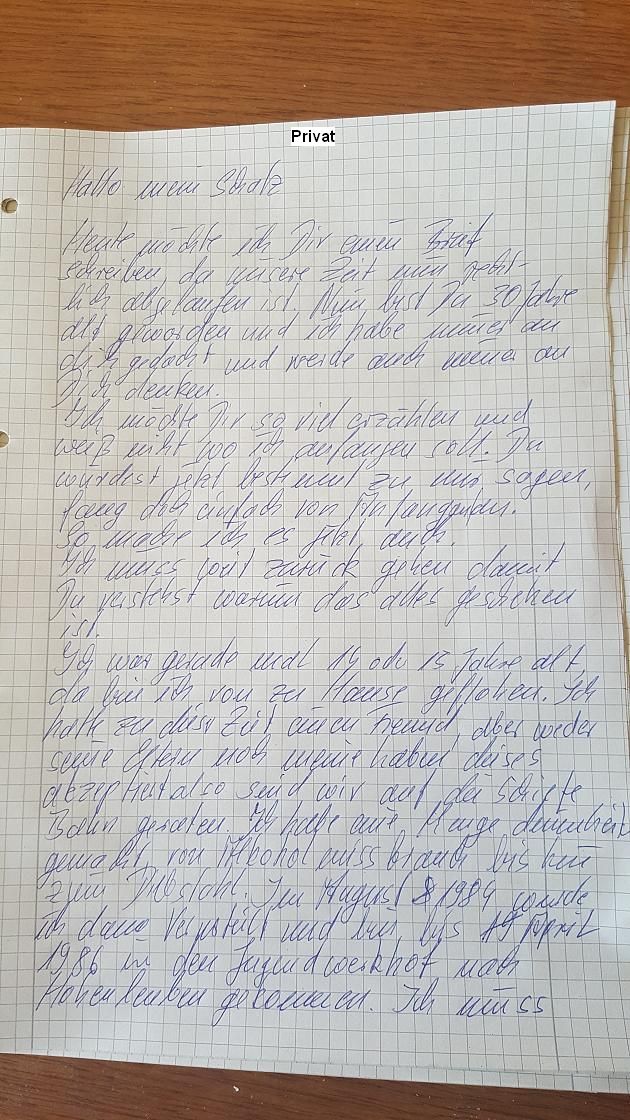 Privat
Hallo mein Schatz
Heute möchte ich Dir einen Brief
schreiben, da unsere Zeit nun recht-
lich abgelaufen ist. Nun bist Du 30 Jahre
alt geworden und ich habe immer an
dich gedacht und werde auch immer an
Dich denken.
Ich möchte Dir so viel erzählen und
weiß nicht wo ich anfangen soll. Du
würdest jetzt bestimmt zu mir sagen,
fang doch einfach von Anfang an.
So mache ich es jetzt auch.
Ich muss weit zurück gehen damit
Du verstehst warum das alles geschehen
ist.
Ich war gerade mal 14 oder 15 Jahre alt,
da bin ich von zu Hause geflohen. Ich
hatte zu dieser Zeit einen Freund, aber weder
seine Eltern noch meine haben dieses
akzeptiert also sind wir auf die schiefe
Bahn geraten. Ich habe eine Menge
gemacht, von Alkohol missbrauch bis hin
zum Diebstahl. Im August 1984 wurde
ich dann und bin bis 19 April
1986 in den Jugendwerkhof nach
Hohenleuben gekommen. Ich muss